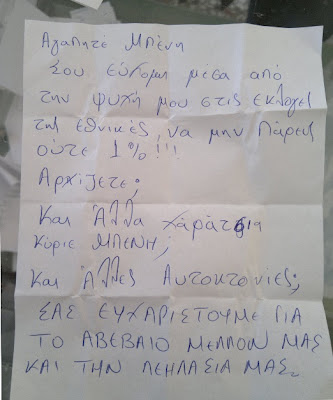 Αγαπητέ Μπένη
Σου εύχομαι μέσα από
την ψυχή μου στις εκλογές
τις εθνικές να μην Πάρεις
ούτε 1%!!!
Αρχίζετε;
Και Άλλα χαράτσια
κύριε ΜΠΕΝΗ;
Και Άλλες Αυτοκτονίες;
ΣΑΣ ΕΥΧΑΡΙΣΤΟΥΜΕ ΓΙΑ
ΤΟ ΑΒΕΒΑΙΟ ΜΕΛΛΟΝ ΜΑΣ
ΚΑΙ ΤΗΝ ΛΕΗΛΑΣΙΑ ΜΑΣ.